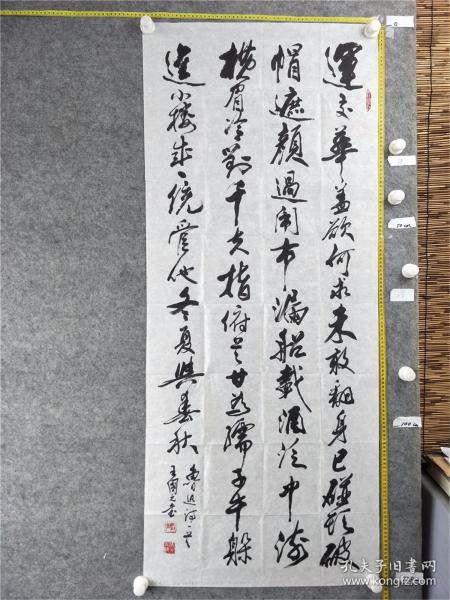 運交華蓋欲何求未敢翻身已碰頭破
帽遮顏過闹市漏船載酒泛中流
横眉冷對千夫指俯首甘為孺子牛躲
進小楼成一统管他冬夏與春秋
魯迅詩一首
0
50cm
100cm
孔夫子旧书网
kongfz.com